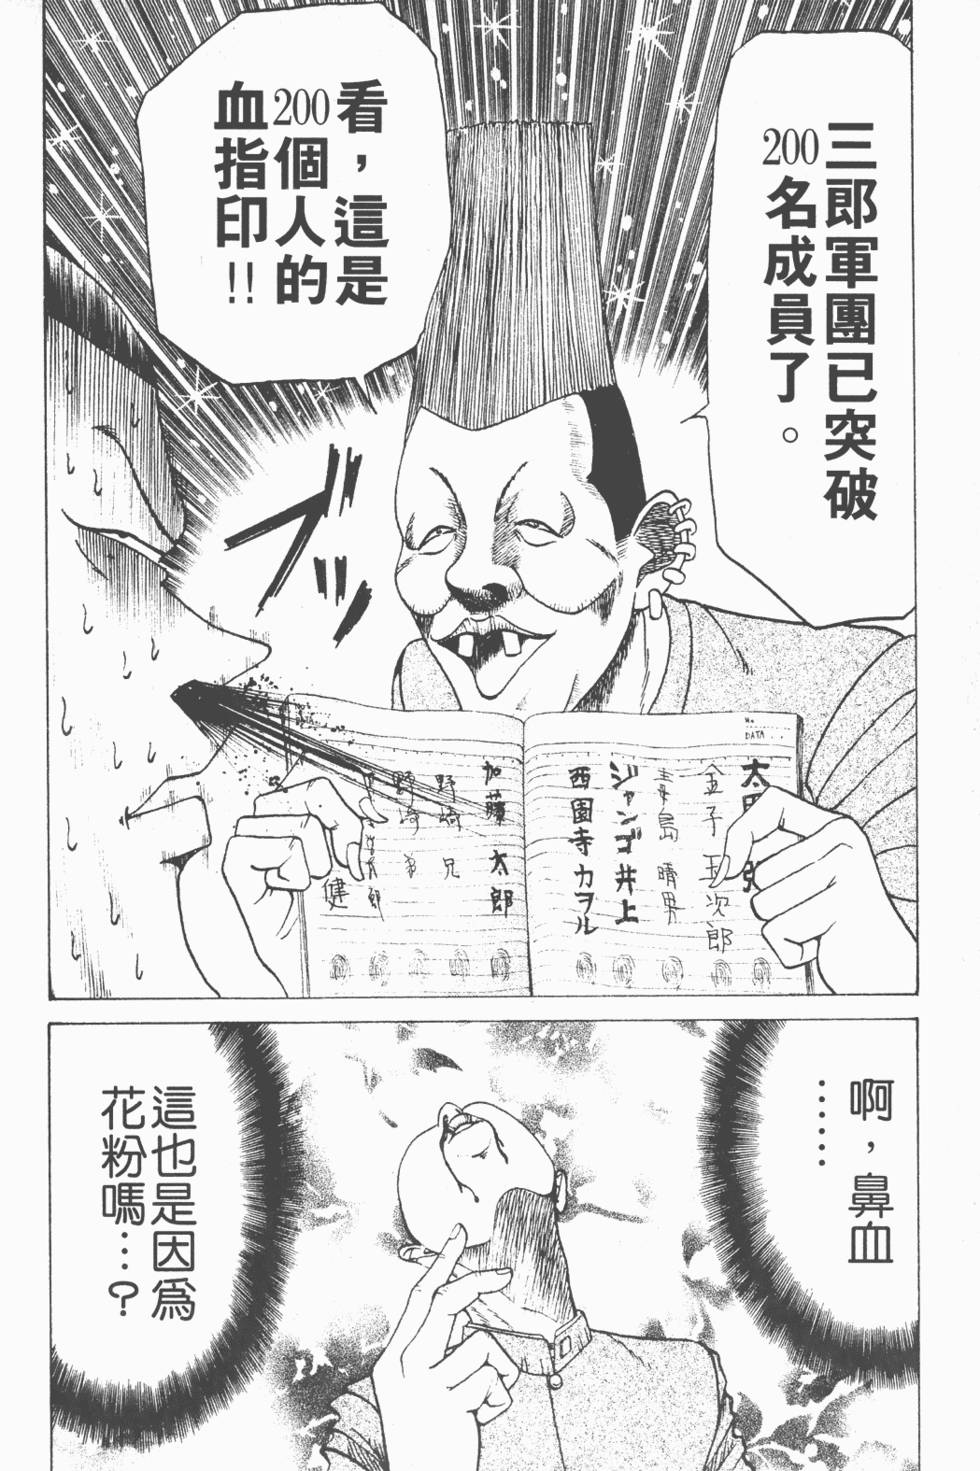 三郎軍團已突破
200名成員了。
看，這是
200個人的
血指印!!
No.
DATA
金子玉次郎
青島晴男
ジャンゴ井上
西園寺カヲル
加藤太郎
野崎兄
野崎弟
健
啊，鼻血
……
這也是因為
花粉嗎…？